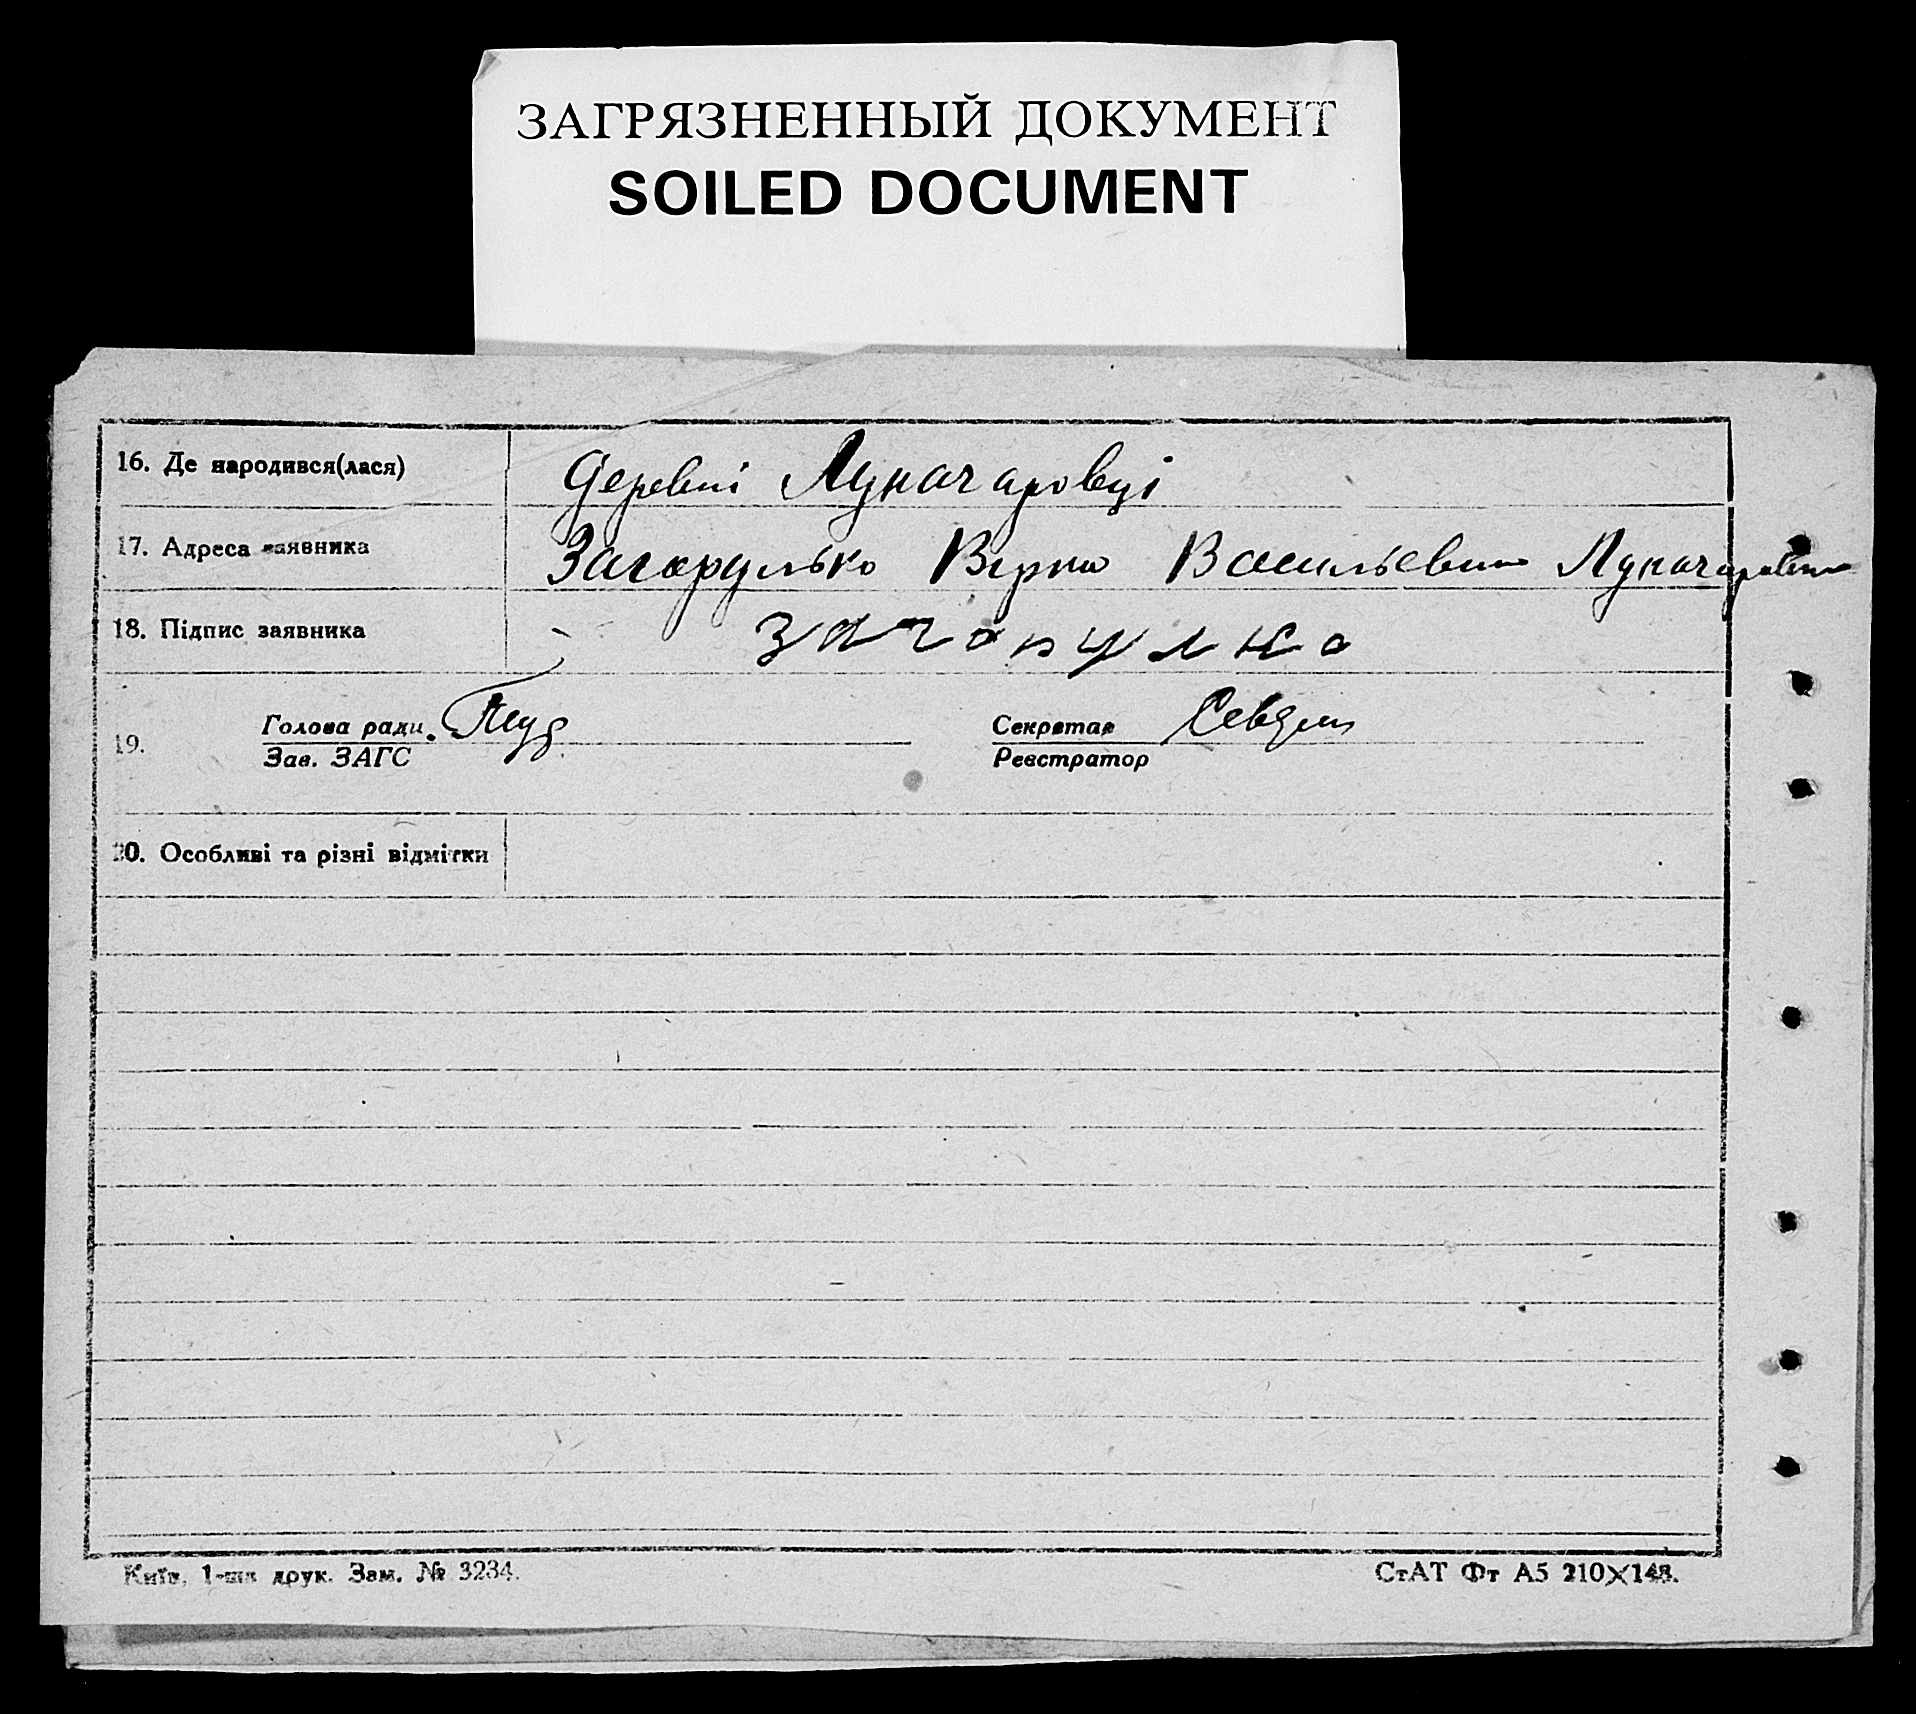 ЗАГРЯЗНЕННЫЙ ДОКУМЕНТ
SOILED DOCUMENT
16. Де народився(лася) Деревні Луначаровці
17. Адреса заявника Загорулько Васильевна
18. Підпис заявника Загорулко
19. Голова ради. Секретар
Зав. ЗАГС Реєстратор
20. Особливі та різні відмітки
Київ, 1-ша друк. Зам. № 3234.
СтАТ Фт А5 210×148.